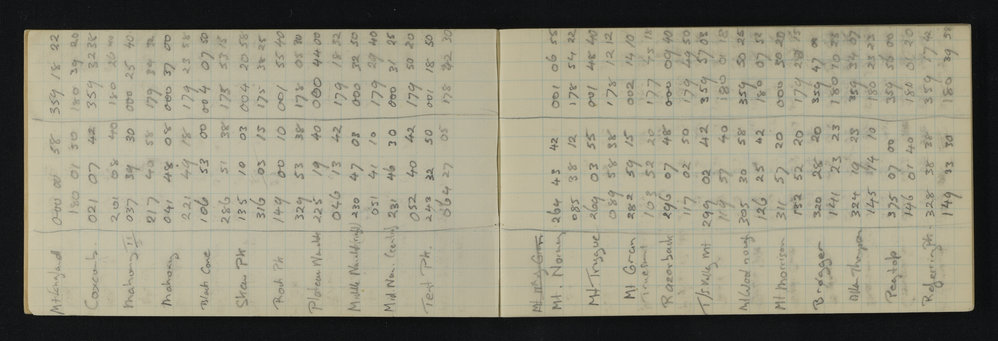 Mt England 000 00 58 359 18 22
180 01 30 180 39 20
Coxcomb. 021 07 42 359 32 38
201 08 40 180 20 40
Mahony II 037 39 30 000 25 40
217 40 58 179 34 32
Mahony 041 48 08 000 37 00
221 49 18 179 23 58
Black Cone 106 53 00 004 07 50
286 51 38 175 53 15
Shear Pk 135 10 03 004 20 58
316 03 15 175 38 25
Rod Pk 149 00 10 001 55 40
329 53 38 178 05 30
Plateau 225 19 40 000 44 00
046 13 42 179 18 32
Middle 230 47 03 000 32 50
051 41 10 179 29 40
Mid Nun 231 46 30 000 31 25
052 40 42 179 50 20
Tent Pk. 243 32 50 001 18 50
064 27 05 178 42 30
Mt. 264 43 42 001 06 55
085 38 12 178 54 22
Mt Tryggve 209 03 55 001 48 40
089 58 38 178 12 12
Mt Gran 282 59 15 002 14 10
103 52 20 177 45 18
Razorback 296 07 48 000 09 40
117 02 50 179 49 50
Mt 299 02 42 359 57 08
119 57 40 180 01 18
Mt Woolnough 305 30 58 359 50 25
126 25 42 180 07 52
Mt Morrison 311 57 20 000 30 20
132 52 20 179 28 15
Bragger 320 28 20 359 47 00
141 23 23 180 10 28
Allan Thompson 324 19 23 359 34 07
145 14 10 180 23 23
325 07 00 359 56 00
146 01 40 180 01 20
Referring Pk. 328 38 28 359 17 42
149 33 30 180 39 58